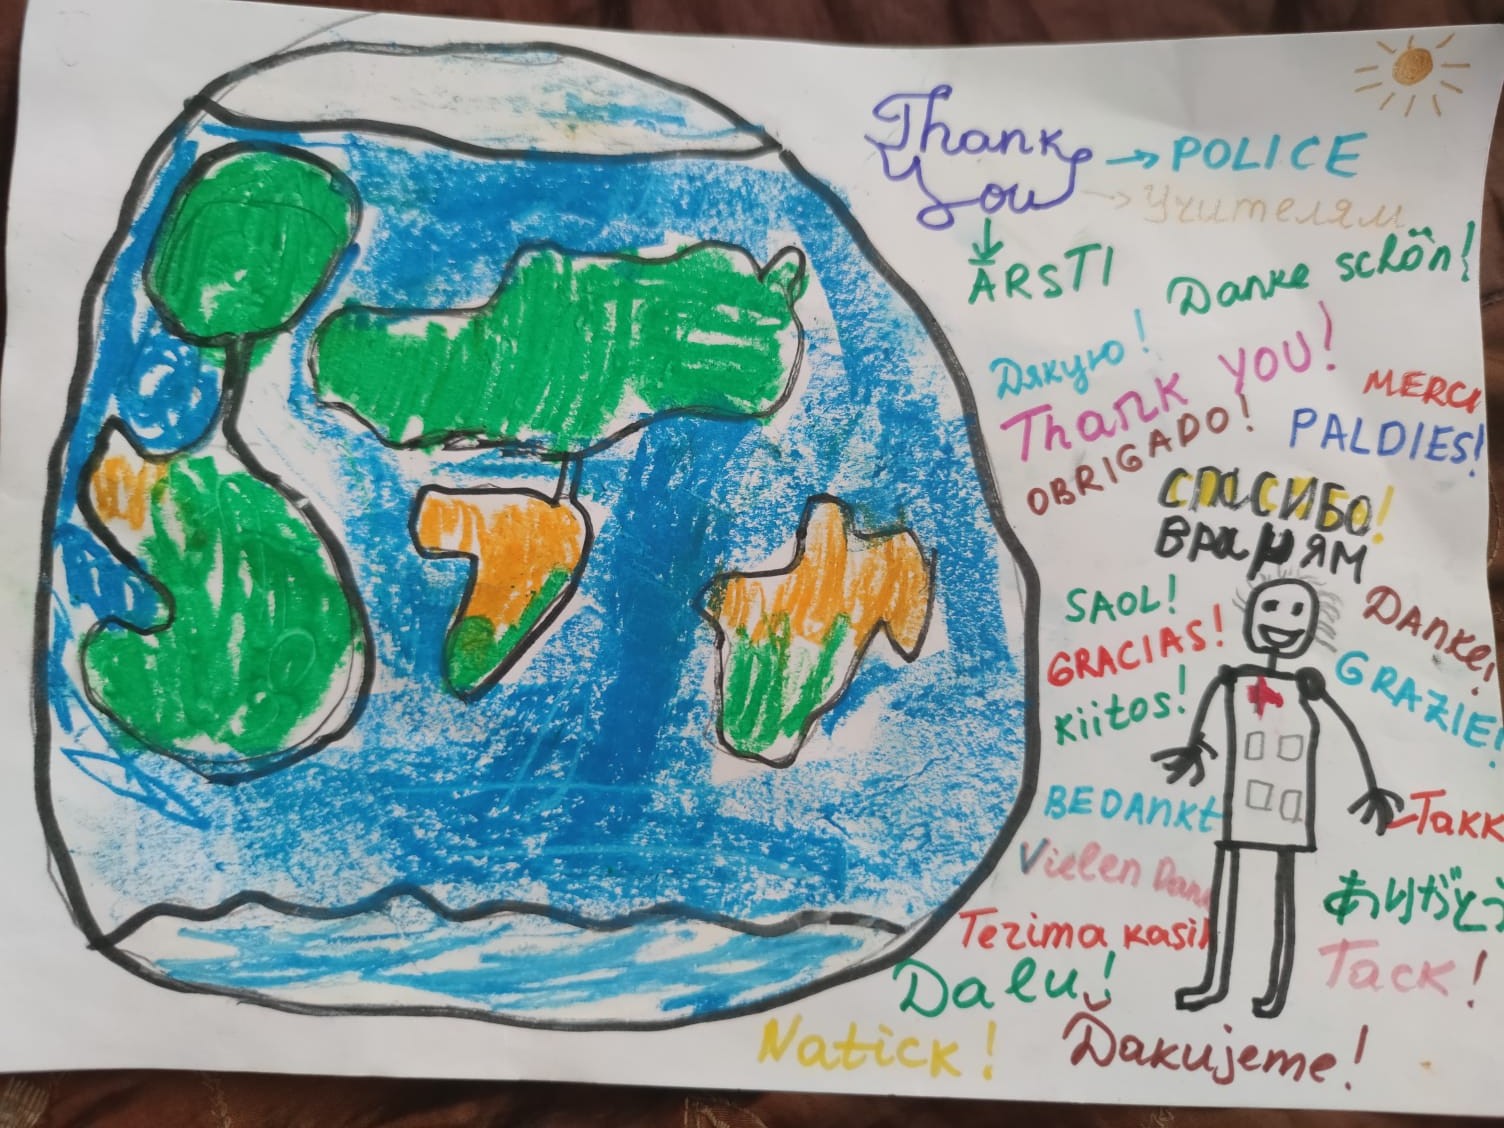 Thank
You
→ POLICE
→ Учителям
ĀRSTI
Danke schön!
Дякую!
Thank YOU!
MERCI
OBRIGADO!
PALDIES!
СПАСИБО!
ВРАЧЯМ
SAOL!
GRACIAS!
Kiitos!
DANKE!
GRAZIE!
BEDANKt
TAKK
Vielen Dank
ありがとう
Terima kasih
Tack!
Dalu!
Natick!
Ďakujeme!